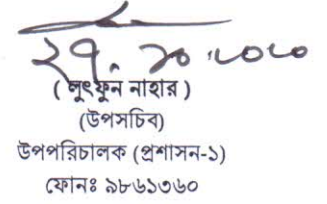 ( লুৎফুন নাহার )
(উপসচিব)
উপপরিচালক (প্রশাসন-১)
ফোনঃ ৯৮৬১৩৬০